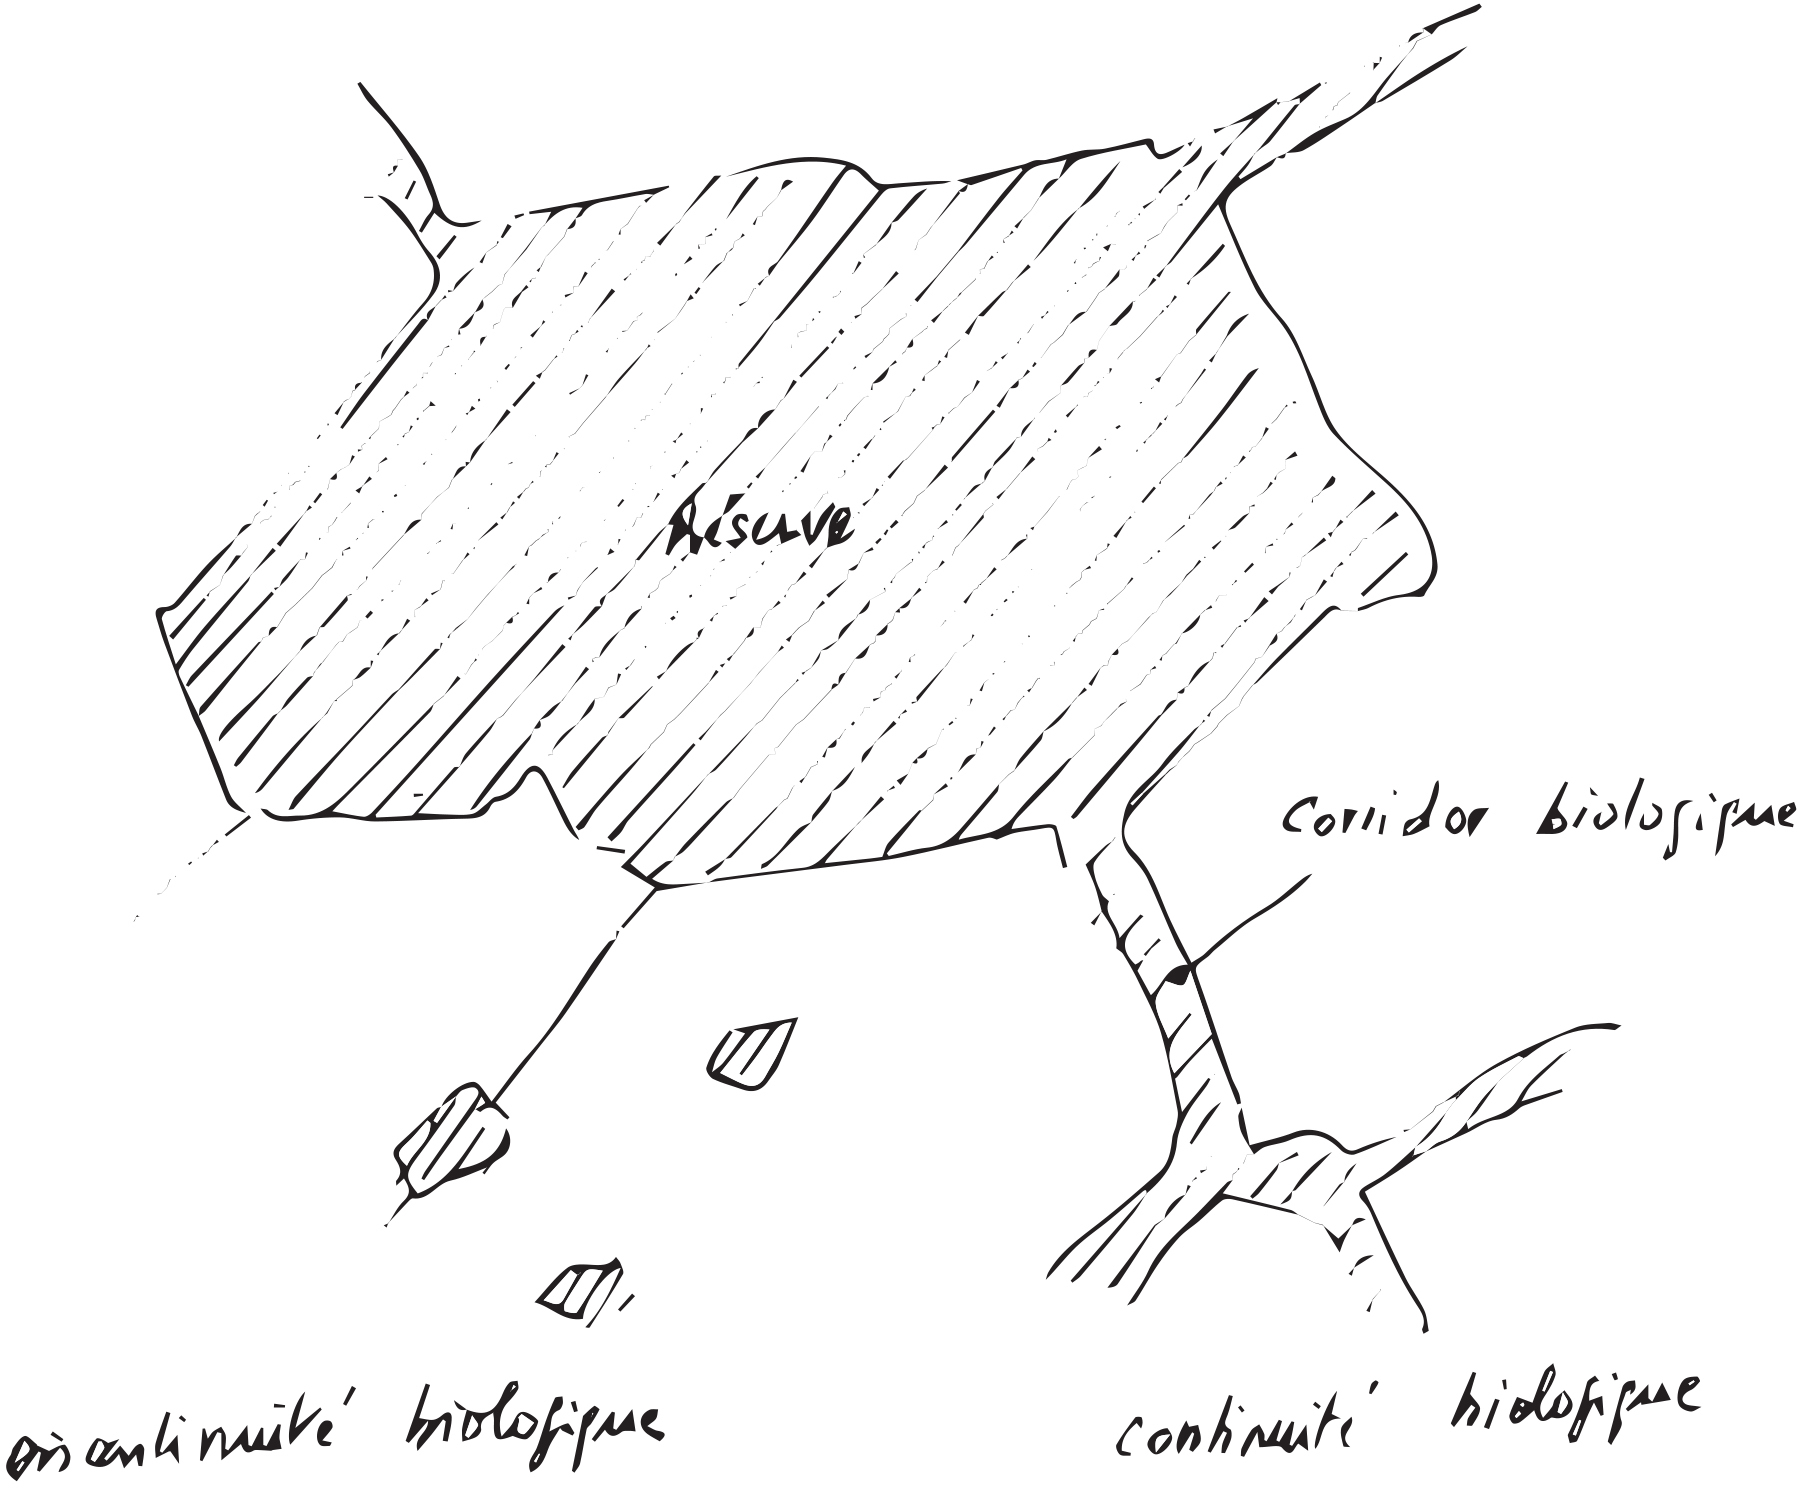 Réserve
corridor biologique
discontinuité biologique
continuité biologique